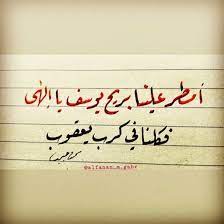 أمطر علينا بريح يوسف يا إلهي
فكلنا في كرب يعقوب
@alfanan_m_gabr